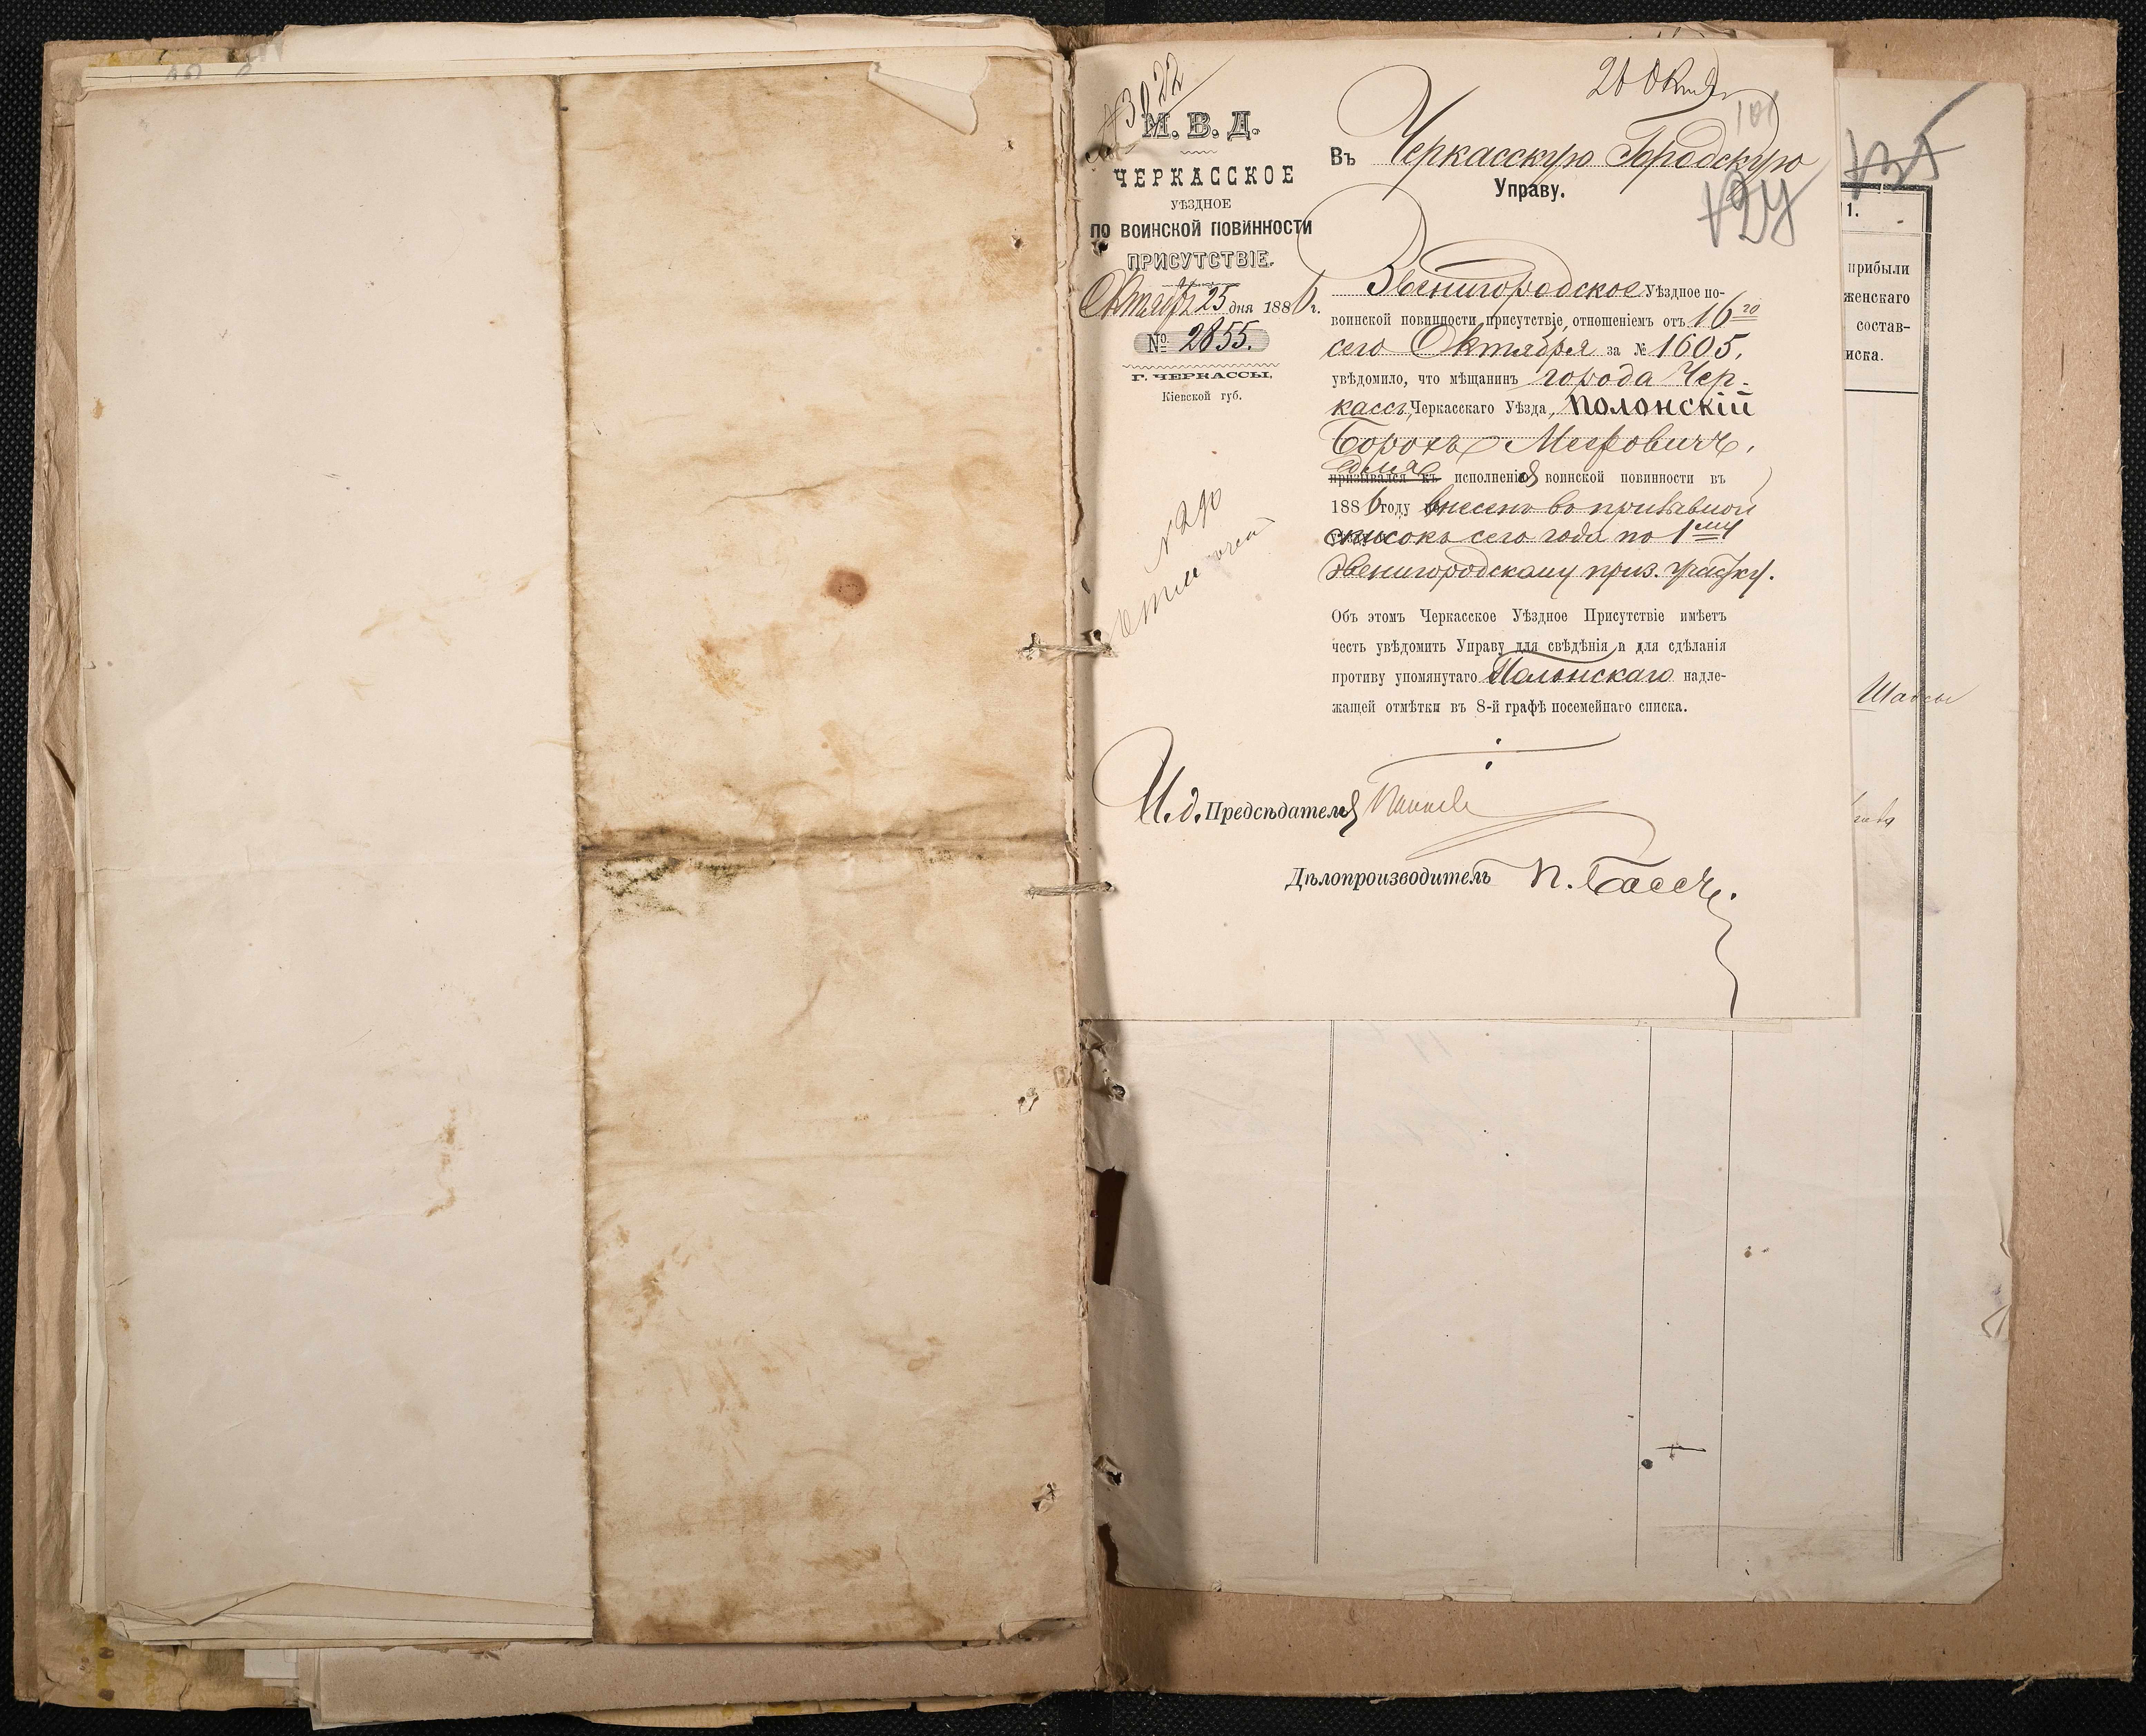 № 3922
М. В. Д.
ЧЕРКАССКОЕ
УѢЗДНОЕ
ПО ВОИНСКОЙ ПОВИННОСТИ
ПРИСУТСТВІЕ.
Октября 25 дня 1886 г.
№ 2855.
Г. ЧЕРКАССЫ,
Кіевской губ.
101
Въ Черкасскую Городскую
Управу.
Звенигородское Уѣздное по-
воинской повинности присутствіе, отношеніемъ отъ 16го
сего Октября за № 1605,
увѣдомило, что мѣщанинъ города Чер-
кассъ, Черкасскаго Уѣзда, Полонскій
Борохъ Мееровичъ,
для
призывался къ исполненія воинской повинности въ
1886 году внесенъ въ призывной
списокъ сего года по 1му
Звенигородскому приз. участку.
Объ этомъ Черкасское Уѣздное Присутствіе имѣетъ
честь увѣдомить Управу для свѣдѣнія и для сдѣланія
противу упомянутаго Полонскаго надле-
жащей отмѣтки въ 8-й графѣ посемейнаго списка.
И. д. Предсѣдателя
Дѣлопроизводитель
1.
прибыли
женскаго
состав-
иска.